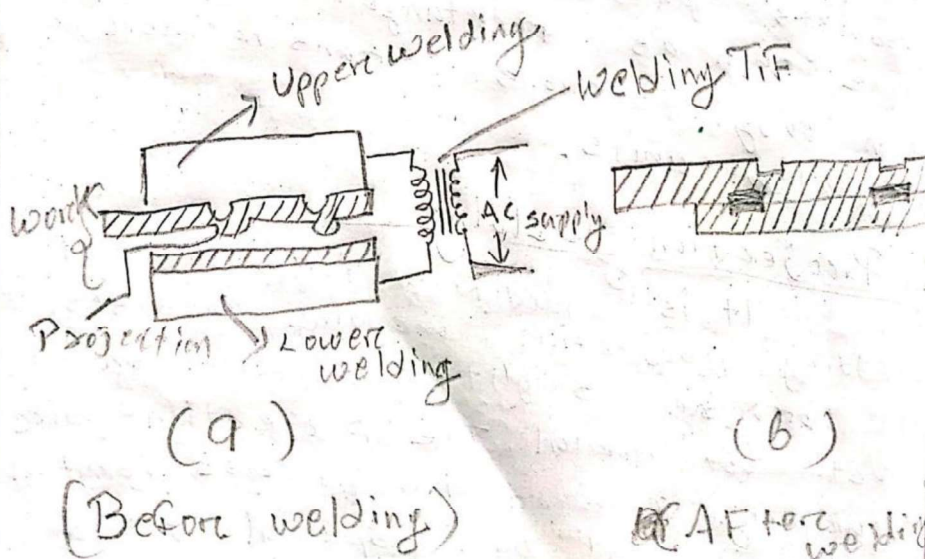 Uppere welding
welding T.F
work
AC supply
Projection
Lowere
welding
(a)
(b)
(Before welding)
(AFtere
welding